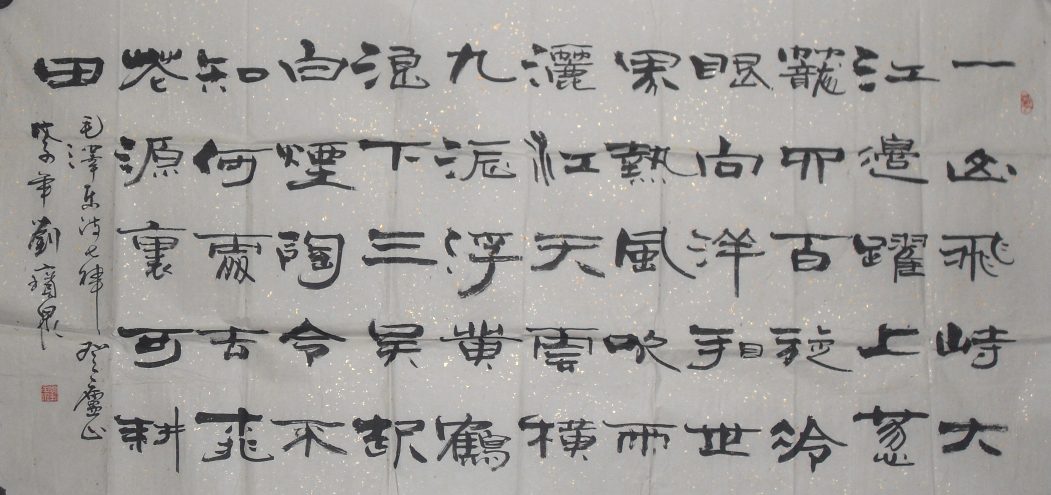 一山飛峙大
江邊躍上蔥
蘢四百旋冷
眼向洋看世
界熱風吹雨
灑江天雲橫
九派浮黄鶴
浪下三吴起
白煙陶令不
知何處去桃
花源裏可耕
田
毛澤東詩七律登廬山
年劉